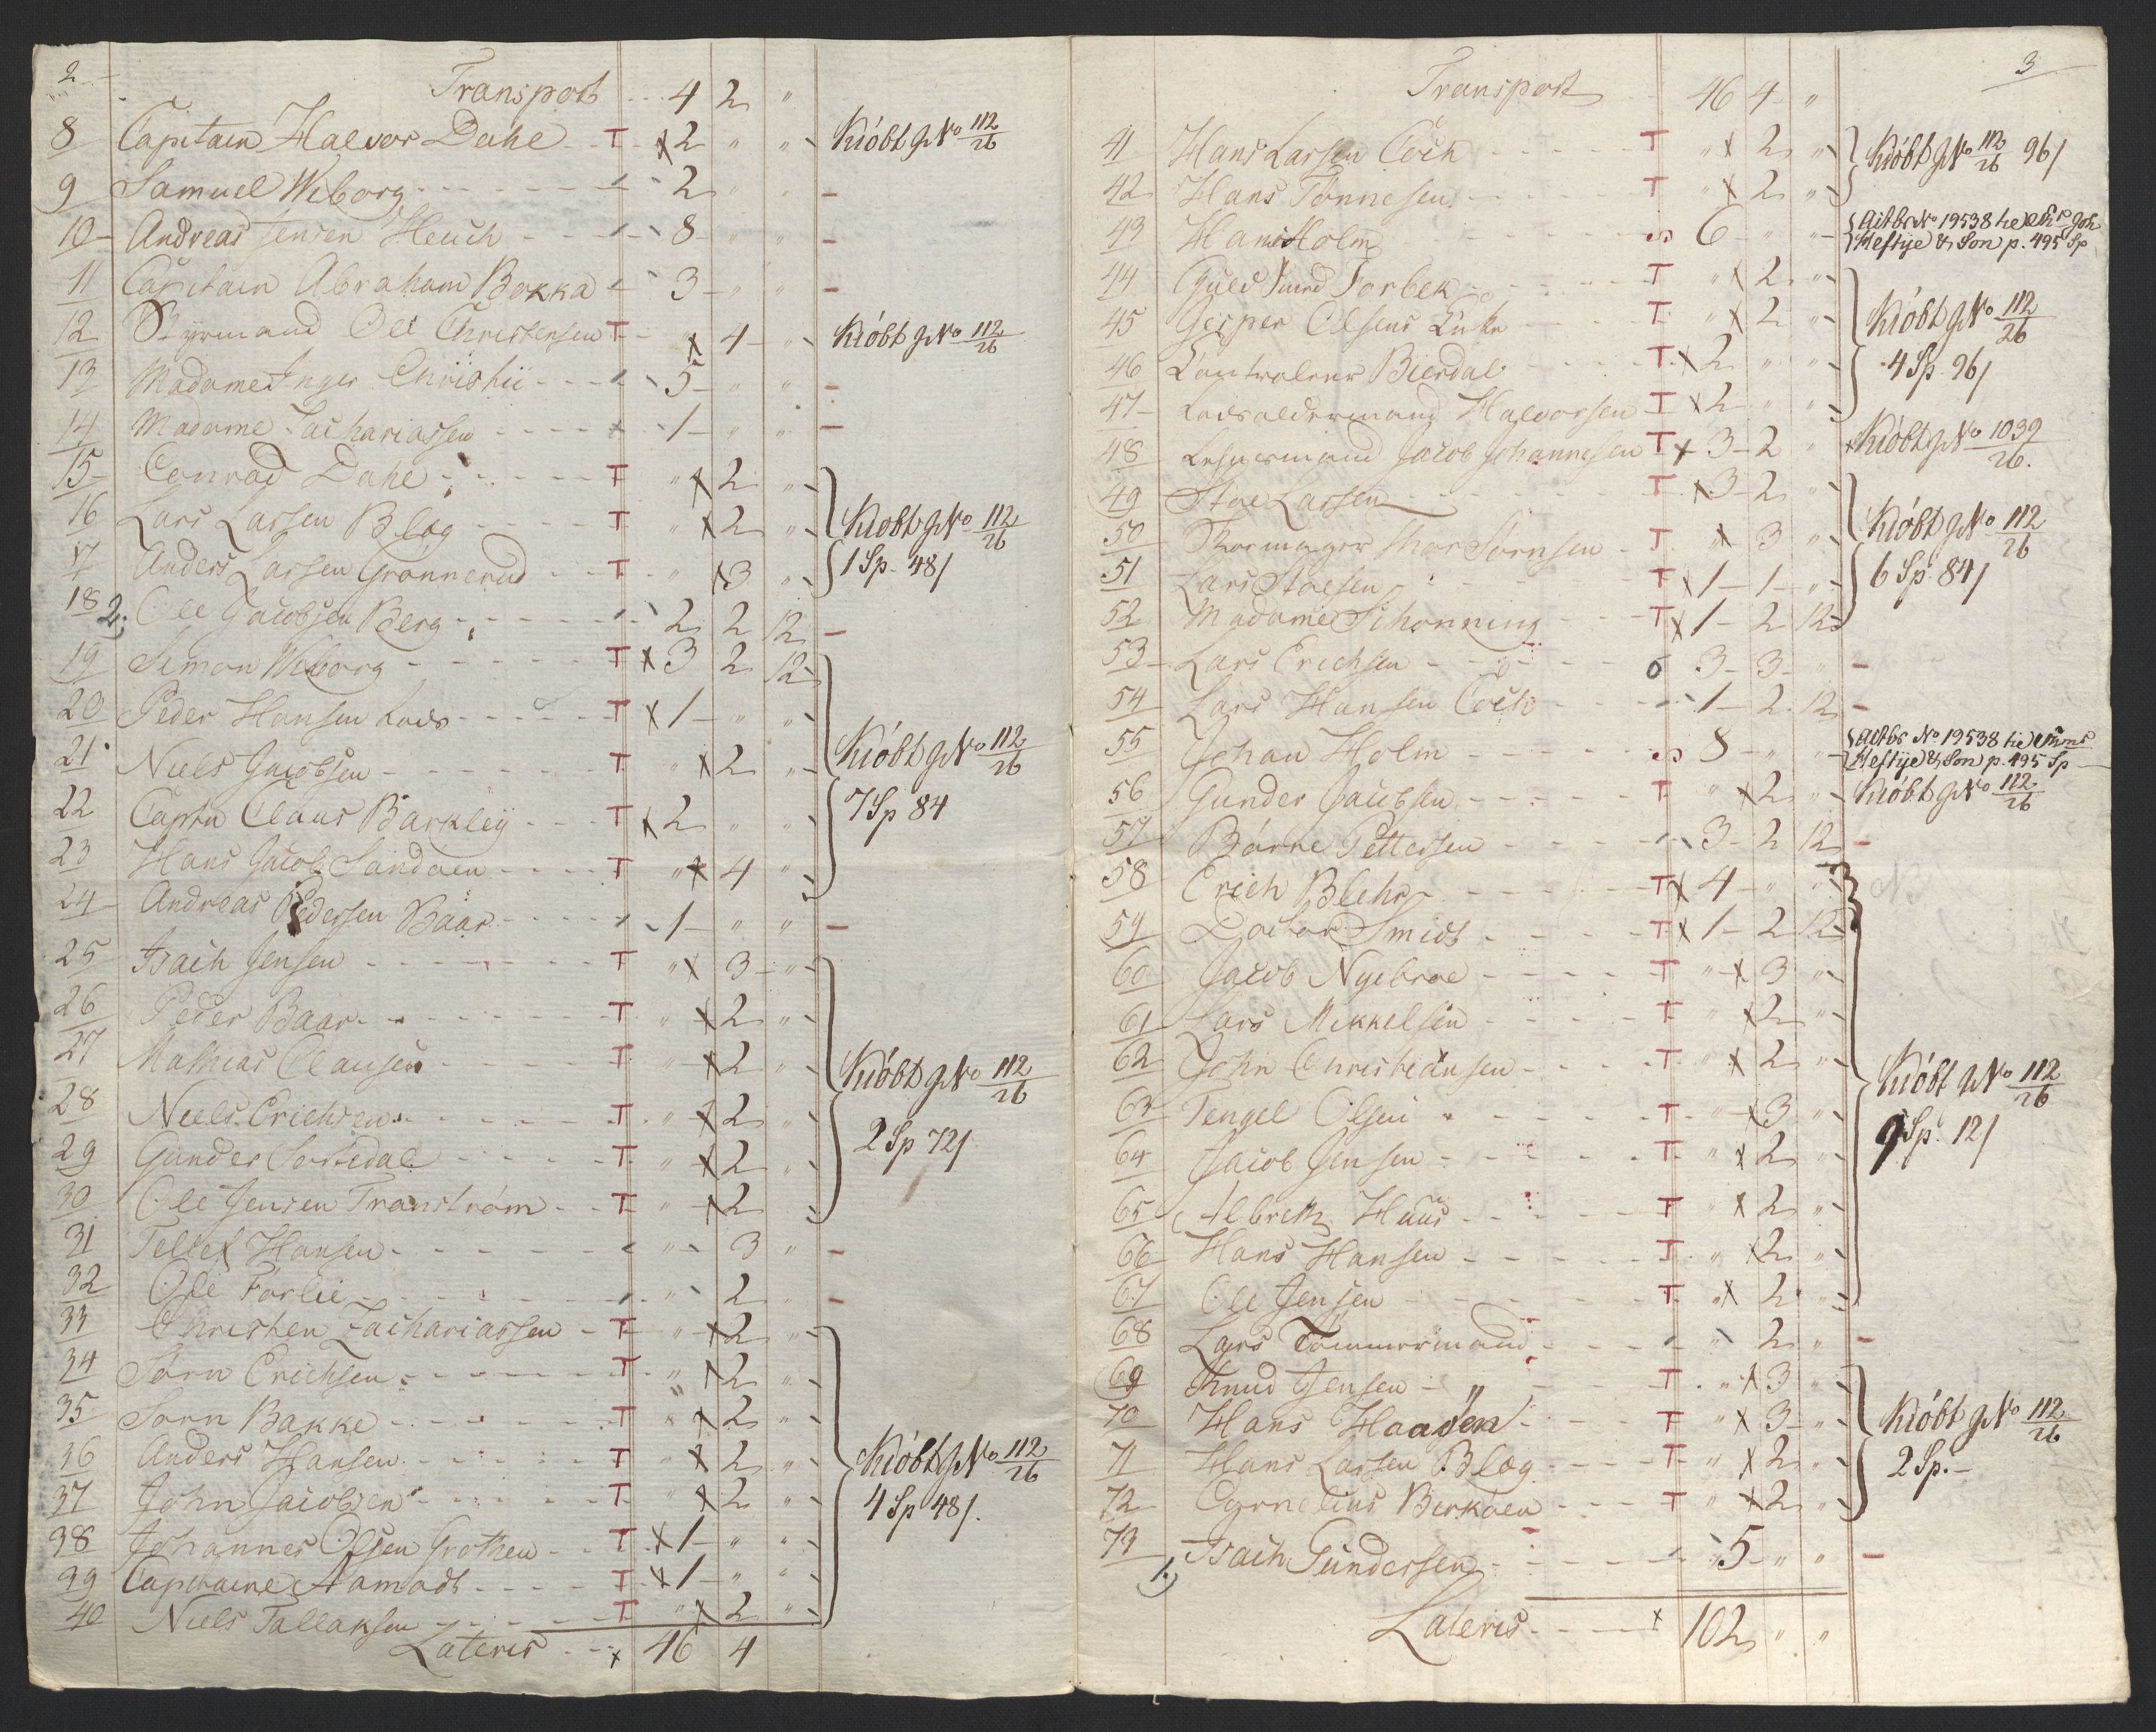 2
Transport 4 2 "
8 Capitain Halvor Dahl T x2 " " Kióbt J No 112/26
9 Samuel Wiborg 2 " " –
10 Andreas Jensen Heuch 8 " " –
11 Capitain Abraham Bokka 3 " " –
12 Styrmand Ole Christensen T x 4 " Kióbt J No 112/26
13 Madame Inger Christii 5 " " –
14 Madame Zachariassen 1 " " –
15 Conrad Dahl T " x2 "
16 Lars Larsen Blog T " x2 " Kióbt J No 112/26
17 Anders Larsen Grönnerud T " x3 " 1 Sp. 48/
18 2. Ole Jacobsen Berg 2 2 12 –
19 Simon Wiborg T x3 2 12
20 Peder Hansen Lods T x1 " "
21 Niels Jacobsen T " x2 " Kióbt J No 112/26
22 Captn Claus Barkley T x2 " " 7 Sp 84
23 Hans Jacob Sandoen T " x4 "
24 Andreas Pedersen Baar 1 " " –
25 Isach Jensen T " x 3 "
26 Peder Baar T " x2 "
27 Mathias Clausen T " x2 " Kióbt J No 112/26
28 Niels Erichsen T " x2 "
29 Gunder Sortedal T " x2 " 2 Sp 72/
30 Ole Jensen Tranström T " x2
31 Tellef Hansen " 3 " –
32 Ole Forlie " 2 " –
33 Christen Zachariassen T " x2 "
34 Sørn Erichsen T " x2 "
35 Sørn Bakke T " x2 "
36 Anders Hansen T " x2 " Kióbt J No 112/26
37 John Jacobsen T " x2 " 4 Sp 48/.
38 Johannes Olsen Grothen T x1 " "
39 Capitaine Aamodt T x1 " "
40 Niels Tallaksen T " x2 "
Lateris x 46 4
3
Transport 46 4 "
41 Hans Larsen Cock T " x 2 " Kióbt J No 112/26 96/
42 Hans Tönnesen T " x 2 "
43 Hans Holm 6 " " Actbr No 19538 Joh
Heftye & Son p. 495 Sp
44 Torbek T " x 2 "
45 Jesper Olsens Enke T " x 2 " Kióbt J No 112/26
46 Controleur Bierdal T x2 " " 4 Sp. 96/
47 Lodsoldermand Halvorsen T x2 " "
48 Lehnsmand Jacob Johannesen T x 3 2 " Kióbt J No 1039/26.
49 Stoe Larsen T x3 2 "
50 Skomager Thor Sörnsen T " x 3 " Kióbt J No 112/26
51 Lars Stoesen T x1 1 " 6 Sp. 84/
52 Madame Schonning T x1 2 12
53 Lars Erichsen o 3 3 " –
54 Lars Hansen Cock 1 2 12 –
55 Johan Holm 8 " " Actbr No 19538
Heftye & Son p. 495 Sp
56 Gunder Jacobsen T " x2 " Kióbt J No 112/26
57 Börre Pettersen 3 2 12 –
58 Erich Blehr T x 4 " "
59 Doctor Smidt T x1 2 12
60 Jacob Nyebroe T " x 3 "
61 Lars Mikkelsen T " x2 "
62 John Christiansen T " x 2 " Kióbt J No 112/26
63 Tengel Olsen T " x3 "
64 Jacob Jensen T " x2 " 9 Sp. 12/
65 Albreth Huus T " x 2 "
66 Hans Hansen T " x2 "
67 Ole Jensen T " x 2 "
68 Lars Tömmermand " 2 " –
69 Knud Jensen T " x3 "
70 Hans Haagen T " x 3 " Kióbt J No 112/26
71 Hans Larsen Blog T " x2 " 2 Sp. –
72 Cornelius Birkoen T " x2 "
73 1.) Isach Gundersen 5 " " –
Lateris x 102 " "